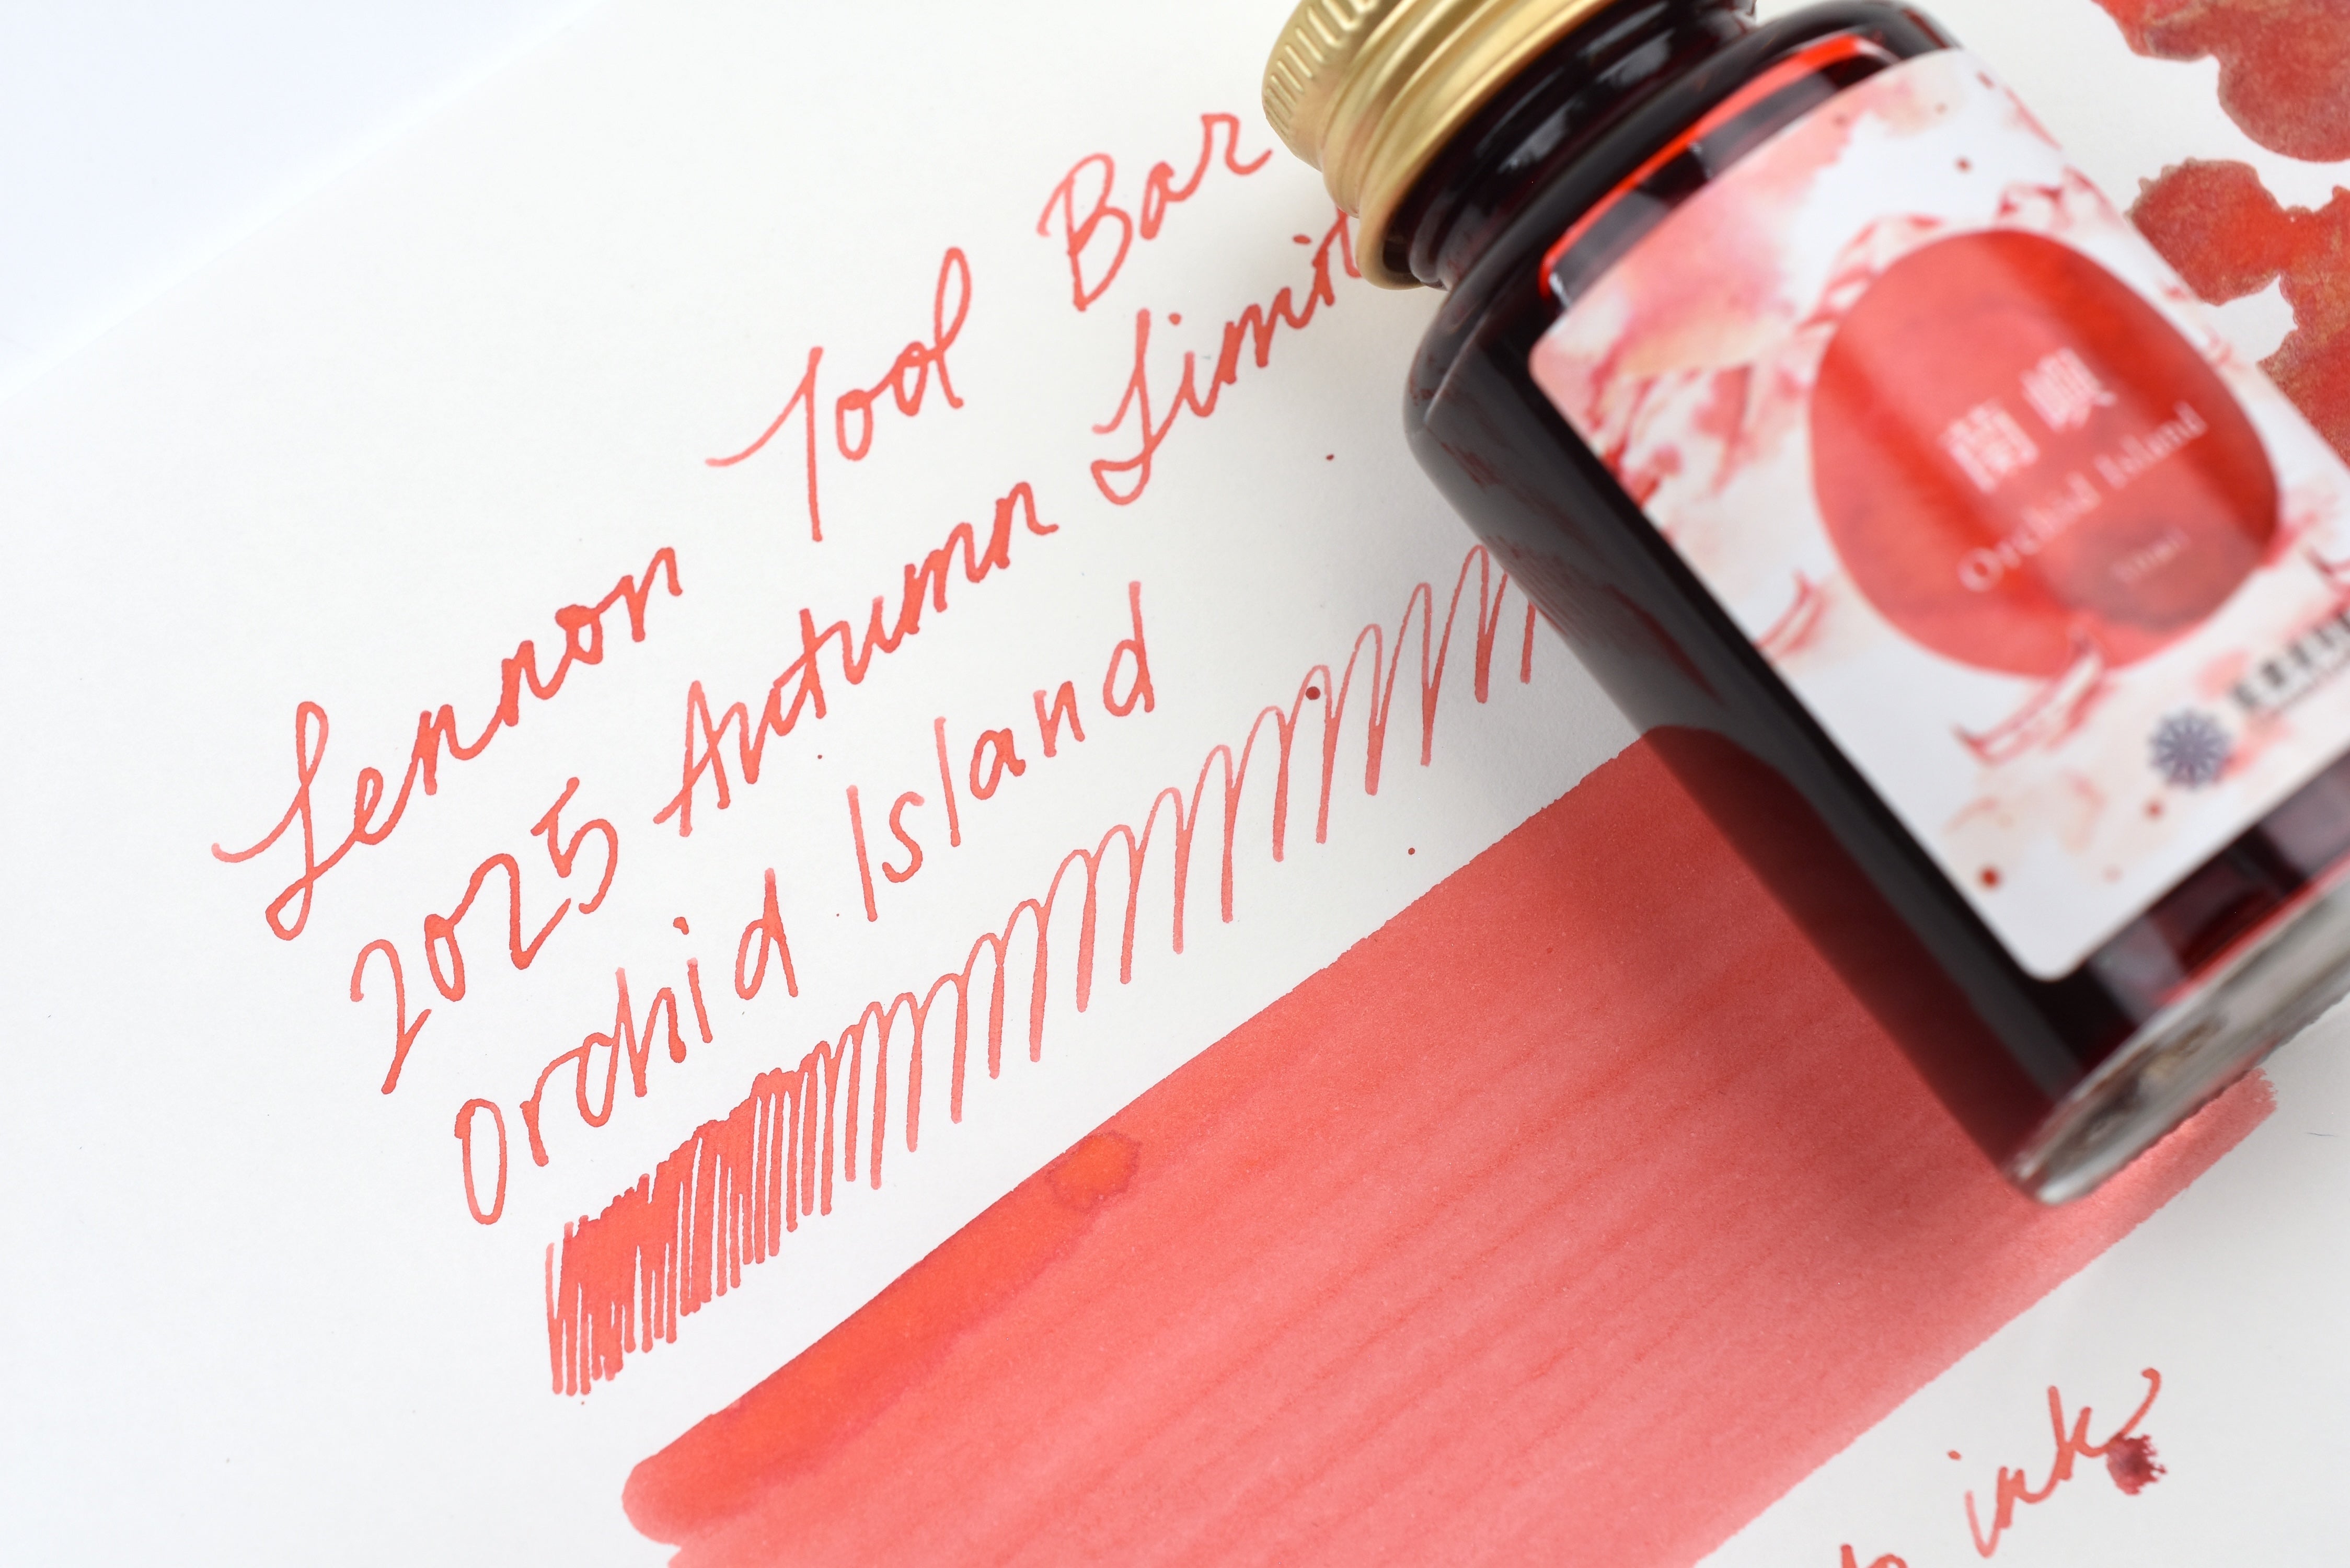 Lennon Tool Bar
2025 Autumn Limit
Orchid Island
蘭嶼
Orchid Island
ink